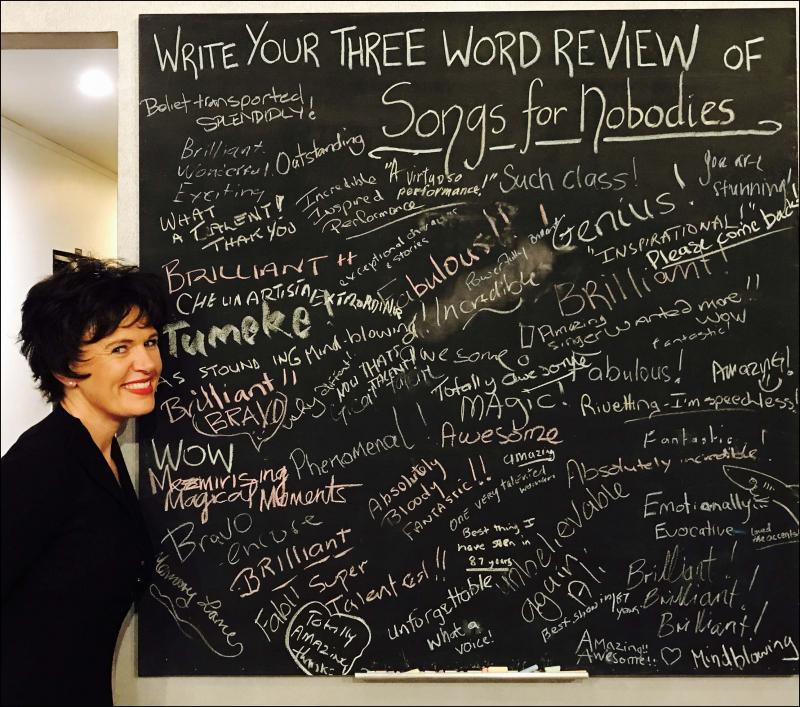 WRITE YOUR THREE WORD REVIEW OF
Songs for Nobodies
Boliet transported
SPLENDIDLY!
Brilliant.
Wonderful
Exciting
Outstanding
WHAT
A TALENT!
THANK YOU
Incredible
Inspired
Performance
"A virtuoso
performance!"
Such class!
You are
stunning!
Genius!
"INSPIRATIONAL!"
Please come back!
exceptional characters
& stories
BRILLIANT
Fabulous!!!
Powerfully
Incredible
BRILLIANT!
EXTRAORDINAIRE
Tumeke
ASTOUNDING
Mind-blowing!!
Amazing
singer
wanted more!!
WOW
fantastic!
NOW THAT'S
TALENT!
Great Talent
Awesome
Totally awesome
Fabulous!
AMAZING!
Brilliant!!
BRAVO
MAGIC!
Riveting - I'm speechless!
WOW
Phenomenal!
Awesome
Fantastic!
Mesmirising
Magical Moments
Absolutely
Bloody
FANTASTIC!!
amazing
one very talented
woman
Absolutely incredible
Emotionally
Evocative
loved
the accents!
Bravo
encore
Best thing I
have seen in
87 years
unbelievable
again!
BRILLIANT
Super
Talented!!
Fab!!
Totally
AMAZING
thanks
unforgettable
What a
voice!
A1.
Best show in 87
years
Brilliant!
Brilliant!
Brilliant!
Amazing!!
Awesome!!
Mindblowing